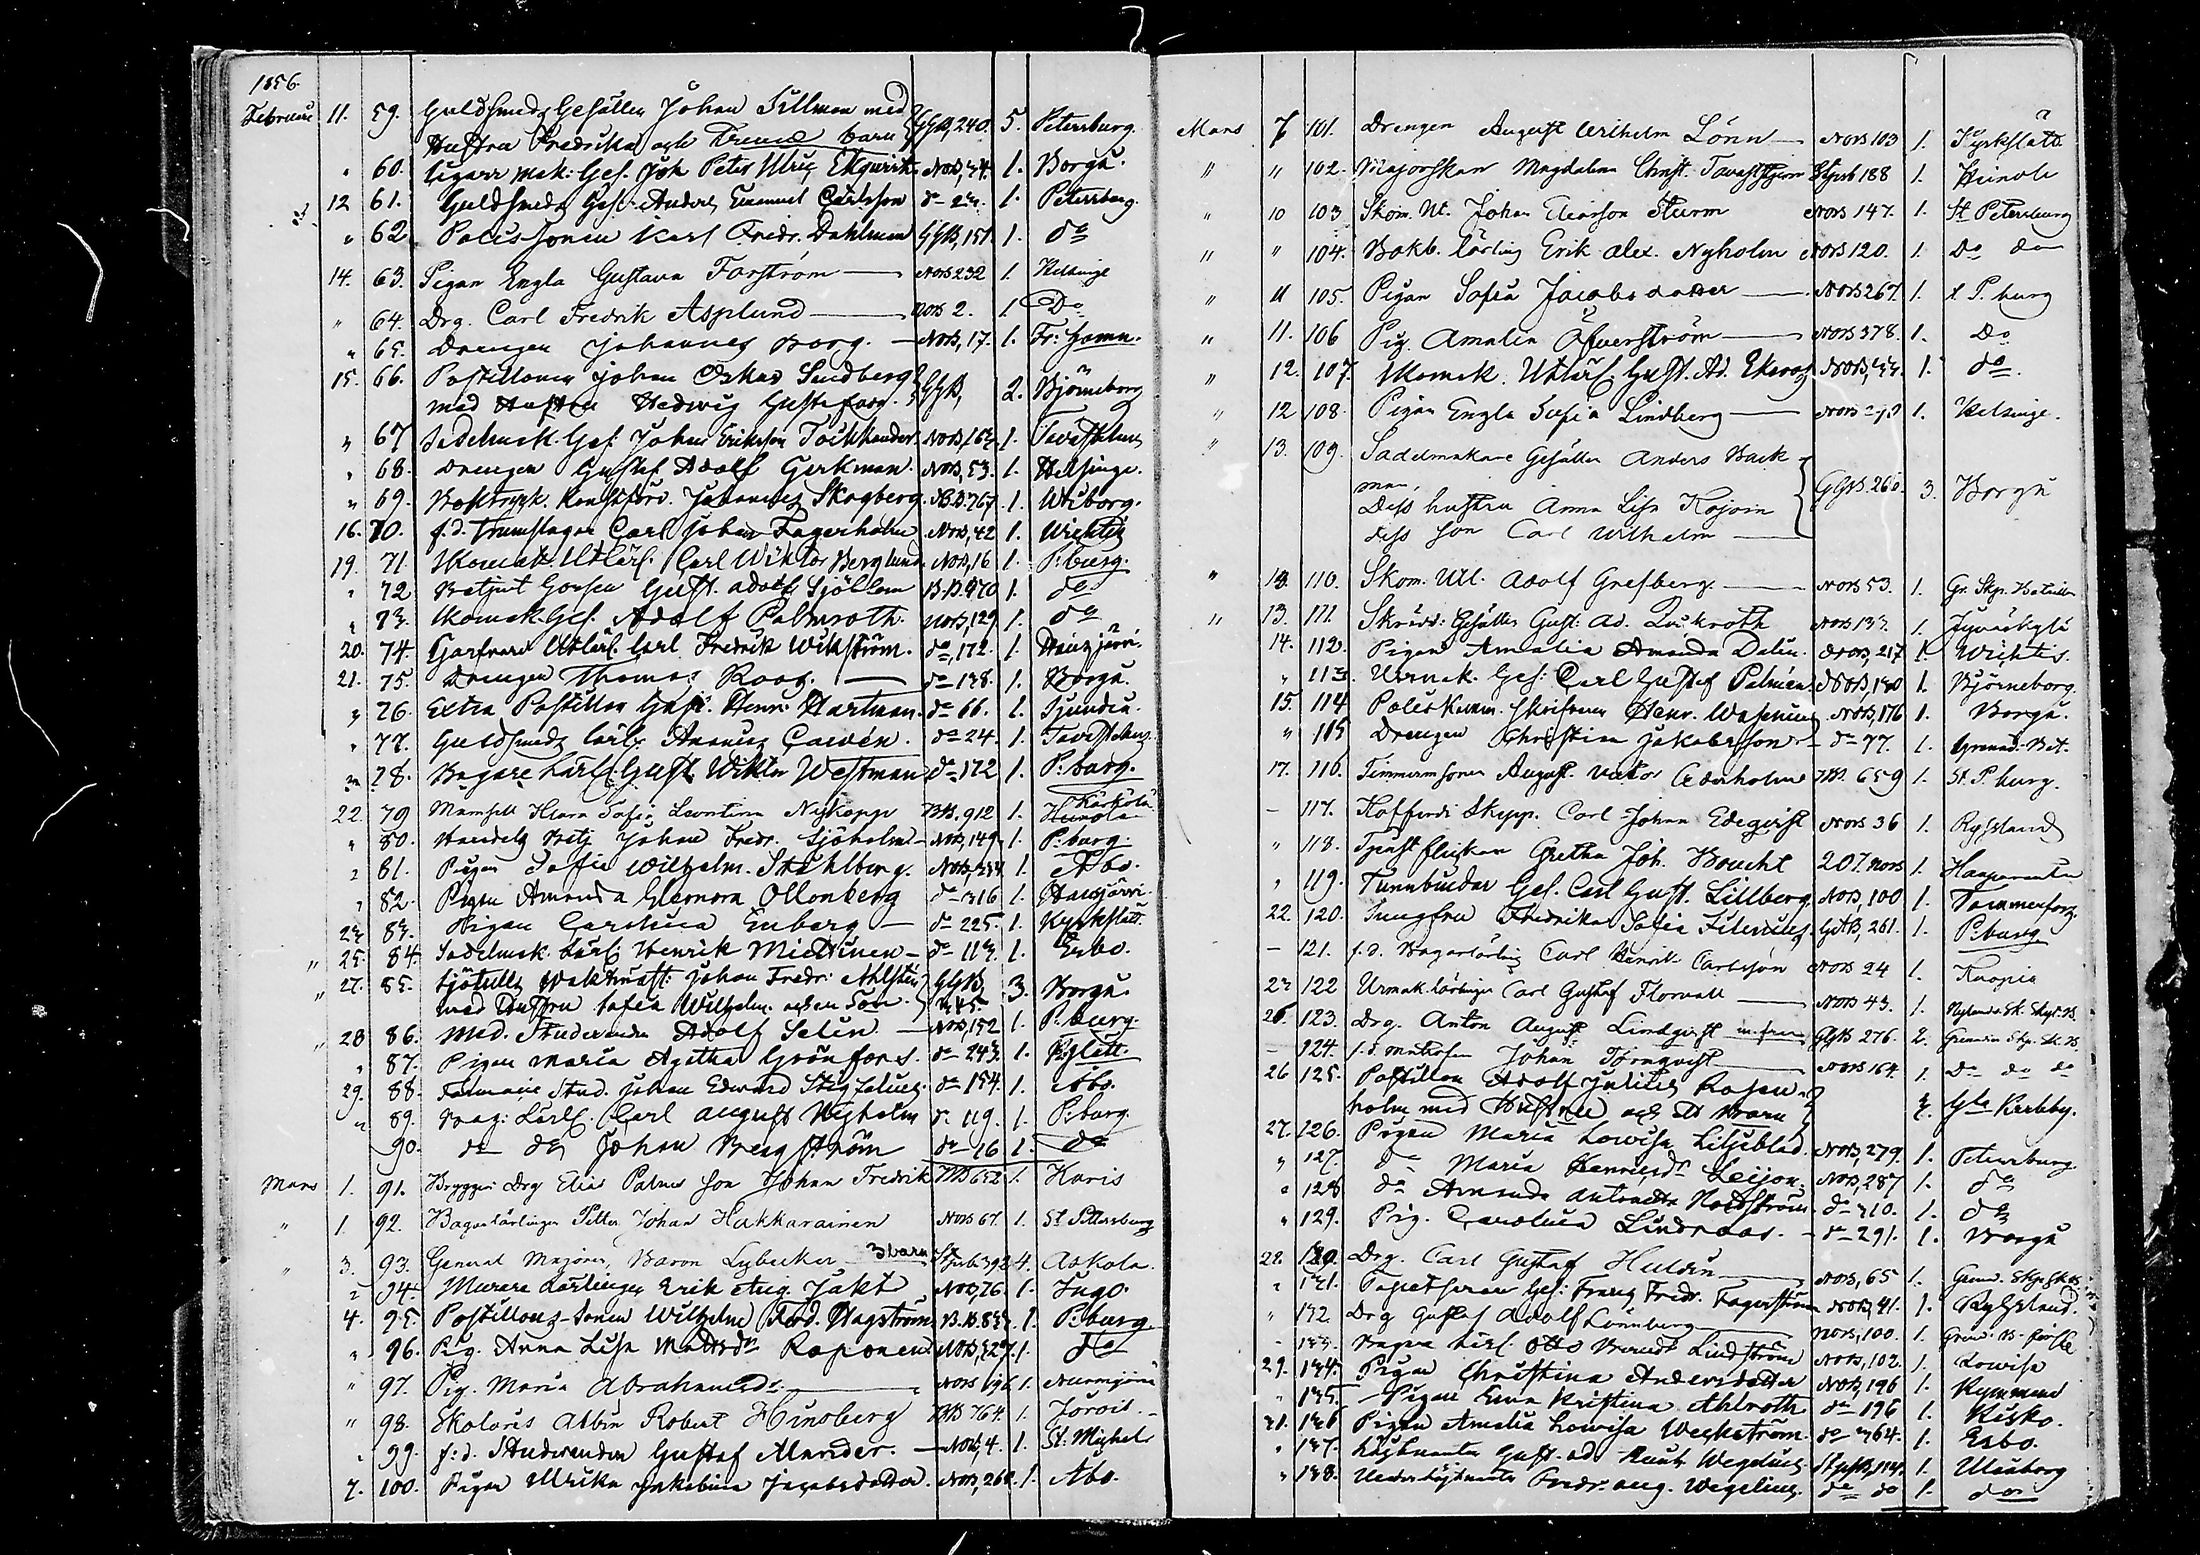 1856.
Februari 11. 59. Guldsmeds Gesällen Johan Tillman med
Hustru Fredrika och Trenne barn GGB, 240. 5. Petersburg.
" 60. Cigarr mak: Ges. Joh Peter Ulric Ekqwist NoB, 1. Borgå.
12 61. Guldsmeds Ges. Anders Emanuel Carlsson do 1. Petersburg.
" 62. Polis Sonen Karl Fredr. Dahlman GGB, 151. 1. do
14. 63. Pigan Engla Gustava Forström — NoB 232 1. Helsinge
" 64. Drg. Carl Fredrik Asplund — NoB 2. 1 Do
" 65. Drengen Johannes Borg. — NoB, 17. 1. Fr: Hamn.
15. 66. Postillonen Johan Oskar Sundberg
med Hustru Hedwig Gustafava. GGB, 2. Björneborg
" 67 Sadelmak. Ges: Johan Eriksson NoB, 1. Tavastehus
" 68. Drengen Gustaf Adolf Gerkman. NoB, 53. 1. Helsinge.
" 69. Boktryck. Konstförv. Johannes Skogberg. B.B. 767. 1. Wiborg.
16. 70. f.d. Trumslagar Carl Johan Fagerholm NoB, 42 1. Wichtis
19. 71. Skomak. Utlärl. Carl Wiktor Berglund NoB, 16 1. P:burg.
" 72 Gossen Gust. Adolf Sjöblom B.B. 970 1. do
" 73. Skomak. Ges. Adolf Palmroth. NoB, 129 1. do
20. 74. Garfvare Utlärl. Carl Fredrik Wikström. do, 172. 1. Hausjärvi.
21. 75. Drengen Thomas Roos. — do 138. 1. Borgå.
" 76. Extra Postillon Gust. Henr: Hartman. do 66. 1. Sjundeå.
" 77. Guldsmeds lärl. Cawén. do 24. 1. Tavastehus.
" 78. Bagare Lärl. Gust. Wiktor Westman do 172 1. P:burg.
22. 79 Mamsell Klara Sofia Leontina Nykopp BB. 912 1. Kärkölä
" 80. Handels Betj Johan Fredr. Sjöholm — NoB, 149. 1. P:burg
" 81. Pigan Sofia Wilhelm. Stahlberg. NoB, 1. Åbo.
" 82. Pigan Amanda Eleonora Ollonberg do 316 1. Hausjärvi.
23 83. Pigan Carolina Enberg — do 225. 1. Kyrkslätt.
" 25. 84. Sadelmak. Lärl. Henrik Miettinen — do 113. 1. Esbo.
" 27. 85. Sjötulls Waktmäst: Johan Fredr: Ahlsten
med Hustru Sofia Wilhelm. och en Son. GGB 3. Borgå.
" 28 86. Med. Studeranden Adolf Selin — NoB, 152 1. P:burg.
" 87. Pigan Maria Agatha Grönfors. do 243. 1. K:slätt.
29. 88. Farmacie Stud. Johan Edvard Stigzelius. do 154. 1. Åbo.
" 89. Bag: Lärl. Carl August Nyholm do 119. 1. P:burg.
90. do do Johan Bergström do 16 1. do
Mars 1. 91. Bryggeri Drg Elias Palmes son Johan Fredrik BB 652 1. Karis
" 1. 92. Bagarlärlingen Petter Johan Hakkarainen NoB 67. 1. St Petersburg
" 3. 93. General Majoren, Baron Lybecker 3 barn 4. Askola.
" 94. Murare Lärlingen Erik Aug. Jakt NoB, 76. 1. Ingo.
4. 95. Postillons-Sonen Wilhelm Ferd. Hagström B.B. 1. P:burg
" 96. Pig. Anna Lisa Mattsdr Raponen NoB, 327. 1. do
" 97. Pig. Maria Abrahamsdr. — NoB 196 1. Nurmijärvi
" 98. Skolaris Albin Robert Hinsberg BB 764. 1. Jorois.
" 99. f.d. Studeranden Gustaf Alander. — NoB, 4. 1. St. Michel
7. 100. Pigan Ulrika Jakobina Jacobsdotter. NoB, 268. 1. Åbo.
Mars 7 101. Drengen August Wilhelm Lönn — NoB 103 1. Kyrkslätt
" " 102. Majorskan Magdalena Christ. Tavaststjerna 188 1. Heinola
" 10 103 Skom. Ut. Johan Eliasson Sturm NoB 147. 1. St Petersburg
" " 104. Bokb. lärling Erik Alex. Nyholm NoB 120. 1. Do do
" 11 105. Pigan Sofia Jacobsdotter — NoB 267. 1. S. P. burg
" 11. 106 Pig. Amalia Öfverström — NoB 378. 1. Do
" 12. 107. Skomak. Utlärl. Gust. Ad. Ekroos NoB, 1. do.
" 12 108. Pigan Engla Sofia Lindberg — NoB 1. Helsinge.
" 13. 109. Sadelmakare Gesällen Anders Back-
man,
Dess hustru Anna Lisa Kojoin
dess son Carl Wilhelm — GGB. 260. 3. Borgå
" 13. 110. Skom. Utl. Adolf Grefberg. — NoB 53. 1. Gr. Skp. Bataillon
" 13. 111. Skrädd: Gesällen Gust: Ad. Qvickroth NoB 137. 1. Jyväskylä
14. 112. Pigan Amalia Amanda Dalin. NoB, 217 1. Wichtis.
" 113. Urmak. Ges: Carl Gustaf Palmén. NoB, 130 1. Björneborg.
15. 114 Poliskamm. Skrifvaren Henr. Wasenius NoB, 176 1. Borgå.
" 115 Drengen Christian Jakobsson — do 77. 1. Grenad. Bat.
17. 116. Timmermsonen August. Viktor Cederholm BB. 659 1. St. P. burg.
— 117. Kofferdi Skepp. Carl Johan Edeqvist NoB 36 1. Ryssland
" 118. Tjenst flickan Gretha Joh. Boucht 207. NoB 1. Haaparanta
" 119. Tunnbindar Ges. Carl Gust. Lillberg NoB, 100 1. Tammerfors.
22. 120. Jungfru Fredrika Sofia Silenius GGB, 261. 1. P:burg.
— 121. f.d. Bagarlärling Carl Henrik Carlsson NoB 24 1. Kuopio
23 122 Urmak. Lärlingen Carl Gustaf Florvall — NoB 43. 1. Nylands Sk. Skyt. B.
26. 123. Drg. Anton August Lindqvist m. fru GGB 276. 2. Grenadier Skp. Sk. B.
— 124. f.d. Johan Törnqvist — NoB 164. 1. Do do do
26 125. Postillon Adolf Julius Rosen-
holm med Hustru och Barn Gla Karleby.
27. 126. Pigan Maria Lowisa Liljeblad. NoB, 279. 1. Petersburg.
" 127. do Maria Henriksdr Leijon. NoB, 287 1. do
" 128 do Amanda Antonetta Nordström. do 310. 1. do
" 129. Pig. Carolina Lindroos. — do 291. 1. Borgå
28. 130. Drg. Carl Gustaf Huldin — NoB, 65 1. Grenad. Skp. Sk. B.
" 131. Ges: Frans Fredr. Fagerström NoB, 41. 1. Ryssland.
" 132 Drg Gustaf Adolf Lönnberg — NoB, 100. 1. Gren. B.
— 133. Bagare Lärl. Otto Berndt Lindström NoB, 102. 1. Lowisa
29. 134. Pigan Christina Andersdotter NoB, 196 1. Kymmene
" 135. Pigan Eva Kristina Ahlroth do 196 1. Kisko.
31. 136 Pigan Amalia Lowisa Weckström. do 364. 1. Esbo.
" 137. Löjtnanten Gust. Ad. Wegelius 114. 1. Uleåborg
" 138. Underlöjtnanten Fredr. Aug. Wegelius. do do 1. do